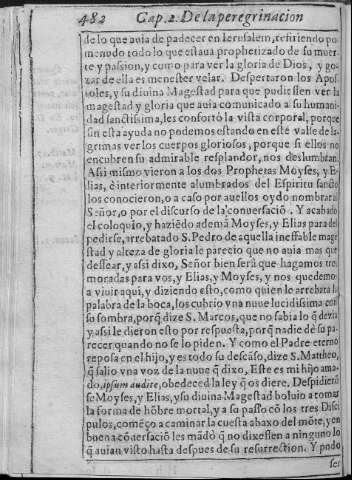 482 Cap. 2. De la peregrinacion
de lo que auia de padecer en Ierusalem, refiriendo por
menudo todo lo que estaua prophetizado de su muer
te y passion, y como para ver la gloria de Dios, y go-
zar de ella es menester velar. Despertaron los Apos
toles, y su diuina Magestad para que pudiessen ver la
magestad y gloria que auia comunicado a su humani-
dad sanctissima, les confortò la vista corporal, porque
sin esta ayuda no podemos estando en este valle de la-
grimas ver los cuerpos gloriosos, porque si ellos no
encubren su admirable resplandor, nos deslumbran.
Assi mismo vieron a los dos Prophetas Moyses, y E-
lias, è interiormente alumbrados del Espiritu sancto
los conocieron, o a caso por auellos oydo nombrar al
Señor, o por el discurso de la conuersaciõ. Y acabado
el coloquio, y haziẽdo ademã Moyses, y Elias para des
pedirse, arrebatado S. Pedro de aquella ineffable mage
stad y alteza de gloria le parecio que no auia mas que
dessear, y assi dixo, Señor bien serà que hagamos tres
moradas para vos, y Elias, y Moyses, y nos quedemos
a viuir aqui, y diziendo esto, como quien le arrebata la
palabra de la boca, los cubrio vna nuue lucidissima con
su sombra, porq̃ dize S. Marcos, que no sabia lo q̃ dezia
y assi le dieron esto por respuesta, porq̃ nadie dè su pa-
recer quando no se lo piden. Y como el Padre eterno
reposa en el hijo, y es todo su descãso, dize S. Mattheo,
q̃ salio vna voz de la nuue q̃ dixo, Este es mi hijo ama-
do, ipsum audite, obedeced la ley q̃ os diere. Despidierõ
se Moyses, y Elias, y su diuina Magestad boluio a tomar
la forma de hõbre mortal, y a su passo cõ los tres Disci
pulos, comẽço a caminar la cuesta abaxo del mõte, y en
buena cõuersaciõ les mãdò q̃ no dixessen a ninguno lo
q̃ auian visto hasta despues de su resurrection. Y pudo
ser